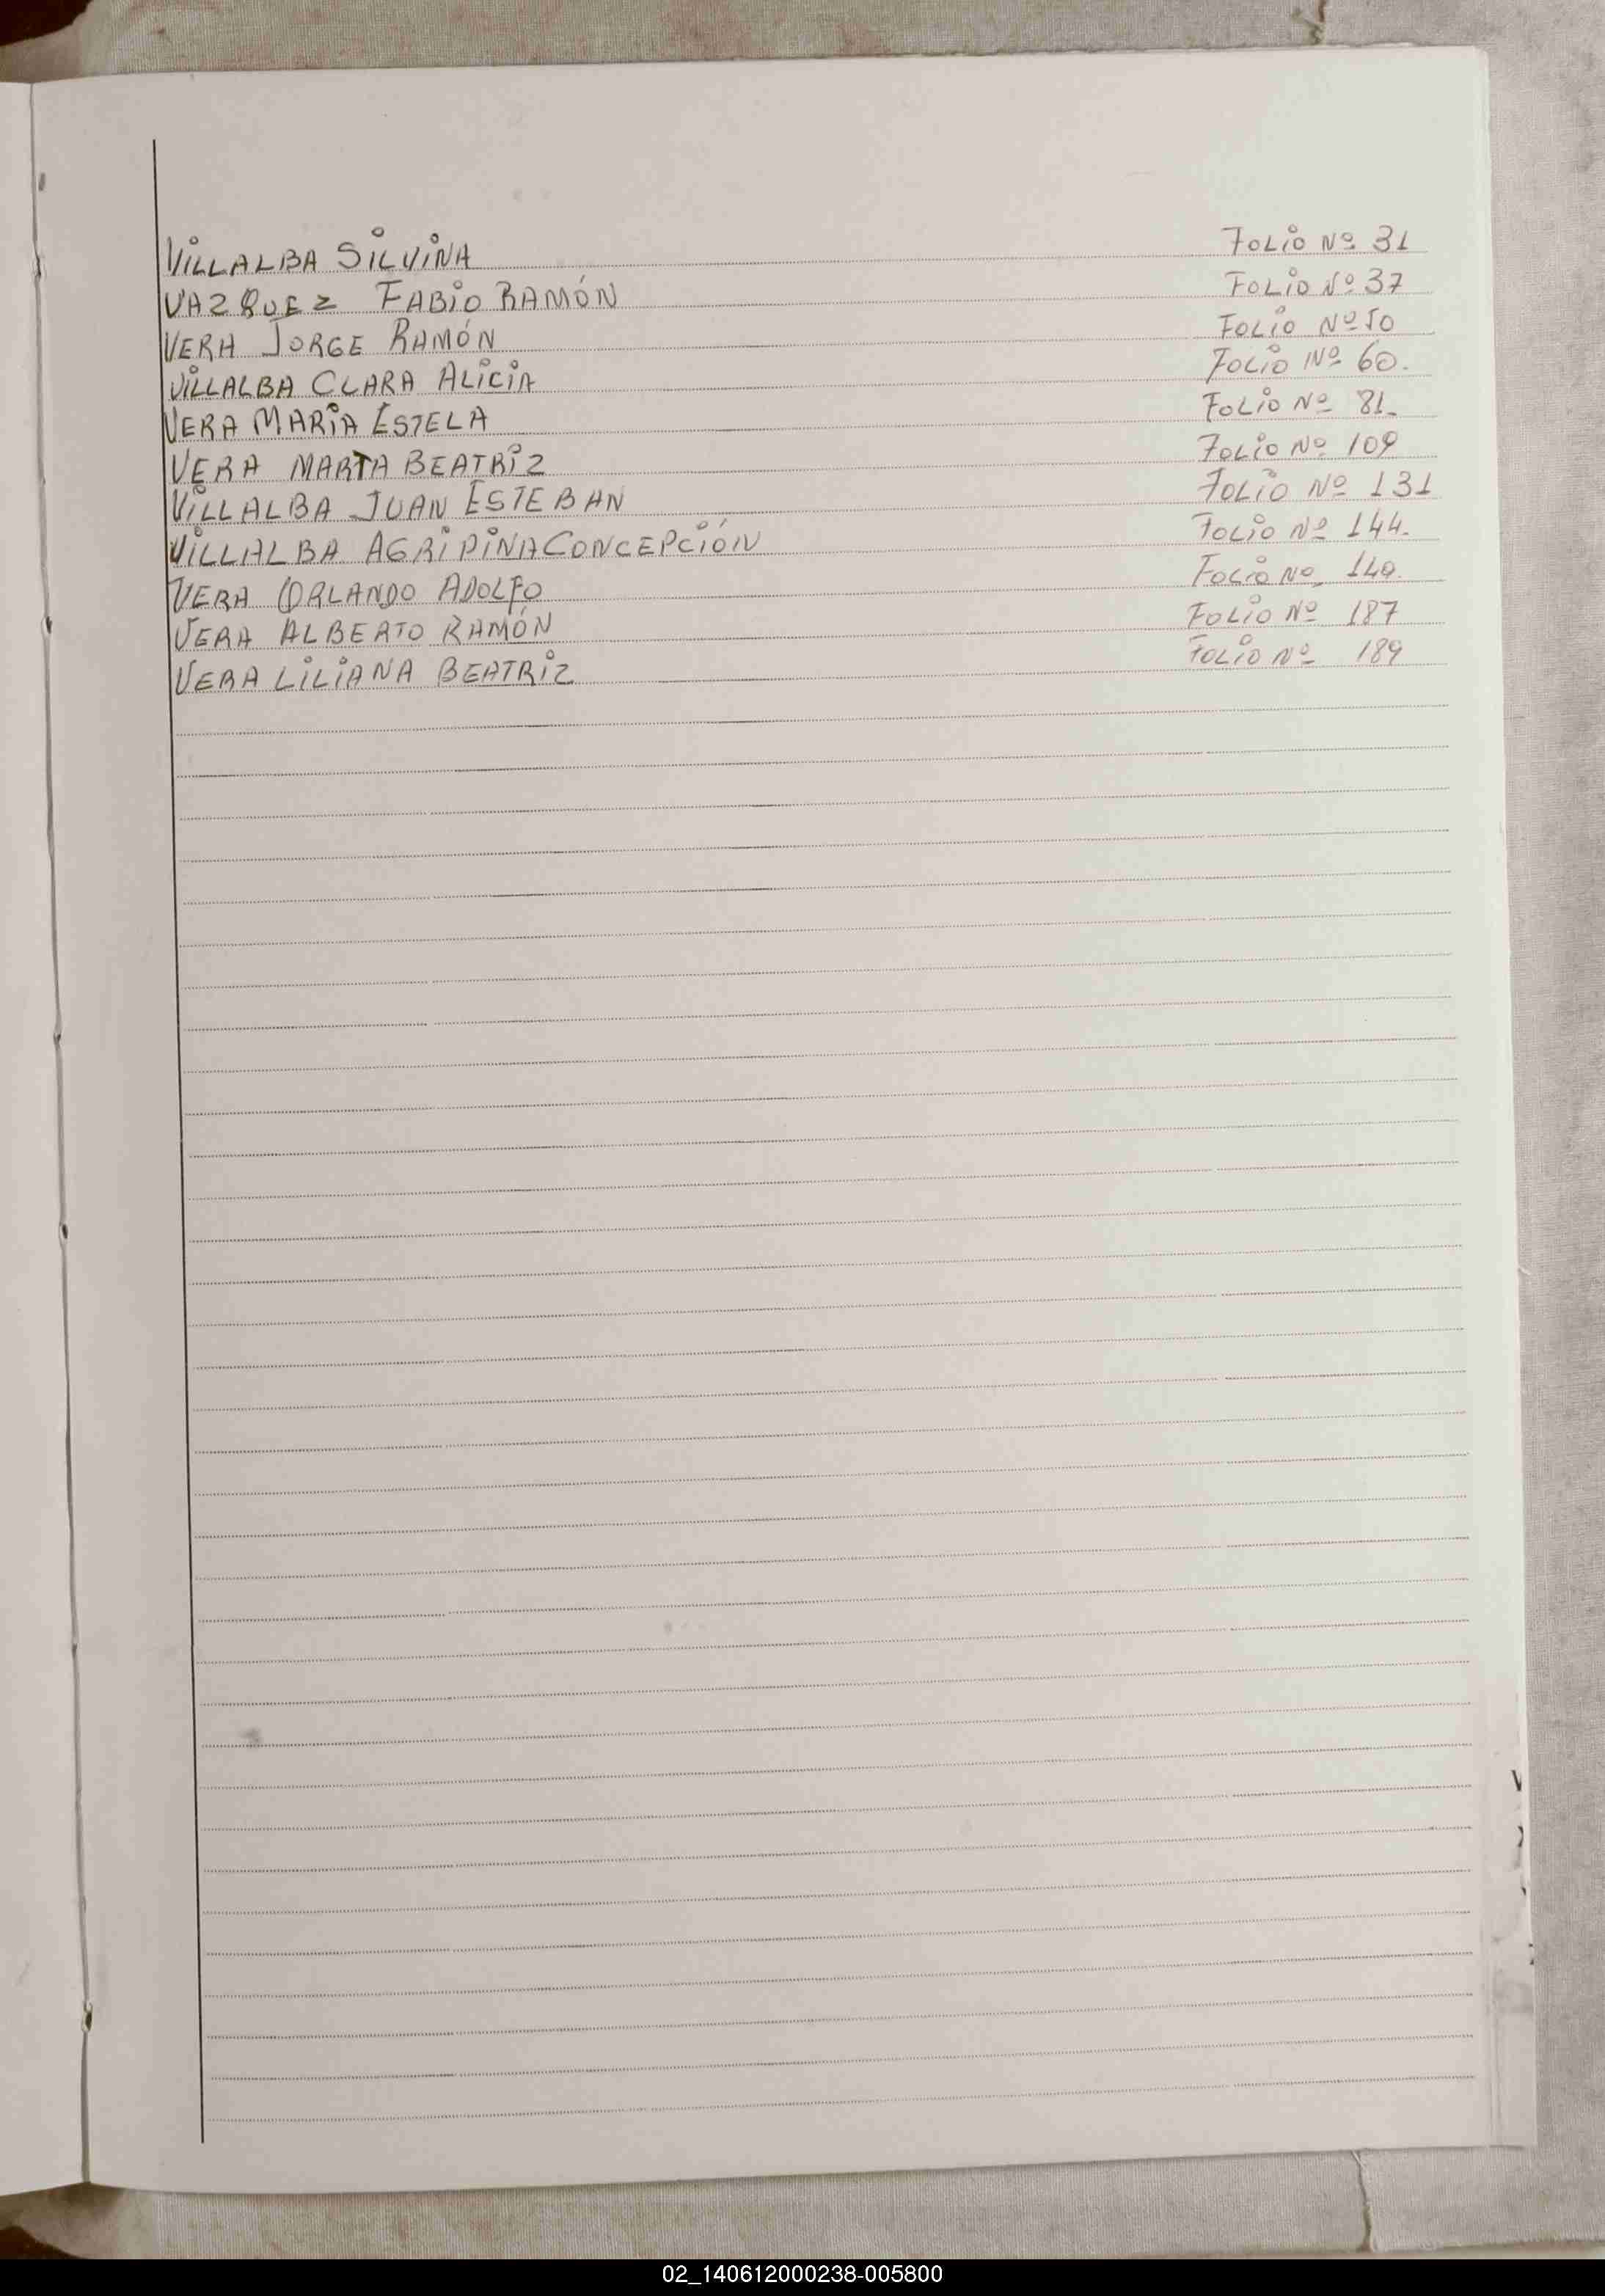 VILLALBA SILVINA Folio Nº 31
VAZQUEZ FABIO RAMÓN Folio Nº 37
VERA JORGE RAMÓN Folio Nº 50
VILLALBA CLARA ALICIA Folio Nº 60.
VERA MARIA ESTELA Folio Nº 81.
VERA MARTA BEATRIZ Folio Nº 109
VILLALBA JUAN ESTEBAN Folio Nº 131
VILLALBA AGRIPINA CONCEPCIÓN Folio Nº 144.
VERA ORLANDO ADOLFO Folio Nº
VERA ALBERTO RAMÓN Folio Nº 187
VERA LILIANA BEATRIZ Folio Nº 189
02_140612000238-005800